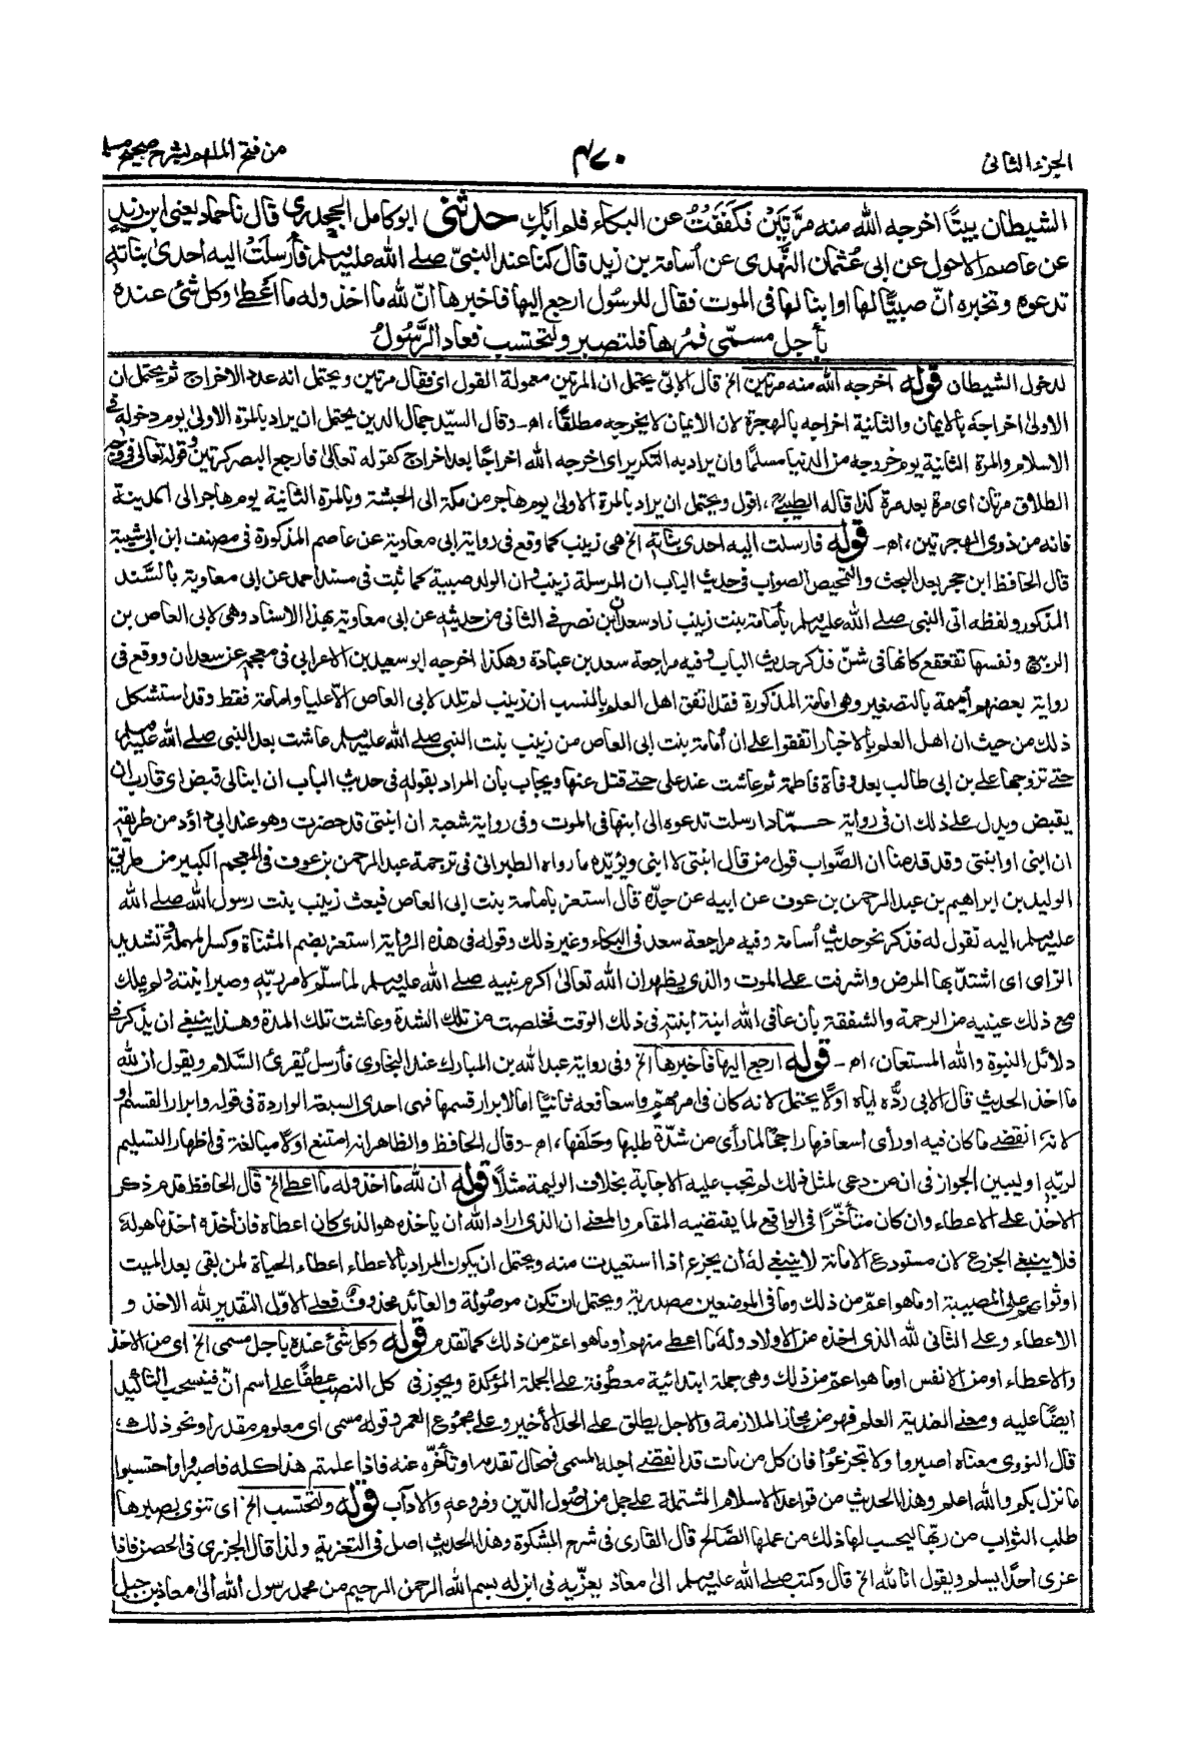 الجزء الثانى
٤٧٠
من فتح الملهم بشرح صحيح مسلم
الشيطان بيتًا اخرجه الله منه مرّتَيَن فكففتُ عن البكاء فلم ابكِ حدثنى ابو كامل الجحدرى قال نا حماد يعنى ابن زيد
عن عاصم الاحول عن ابى عُثمان النَّهدى عن اُسامة بن زيد قال كنا عند النبىّ صلے الله عليه وسلم فأرسلَتْ اليه احدىٰ بناته
تدعوه وتخبره انّ صبيًّا لها او ابنا لها فى الموت فقال للرسول ارجع اليها فاخبرها انّ لله ما اخذ وله ما اعْطےٰ وكل شئ عنده
بأجل مسمّى فمُرها فلتصبر ولتحتسب فعاد الرَّسُولُ
لدخول الشيطان قوله اخرجه الله منه مرتين الخ قال الابىّ يحتمل ان المرتين معمولة القول اى فقال مرتين ويحتمل انه عدد الاخراج ثم يحتمل ان
الاولىٰ اخراجه بالايمان والثانية اخراجه بالهجرة لان الايمان لا يخرجه مطلقًا، اھ- وقال السيّد جمال الدين يحتمل ان يراد بالمرة الاولىٰ يوم دخوله فى
الاسلام والمرة الثانية يوم خروجه من الدنيا مسلمًا وان يراد به التكرير اى اخرجه الله اخراجًا بعد اخراج كقوله تعالىٰ فارجع البصر كرتين وقوله تعالىٰ
الطلاق مرتان اى مرة بعد مرة كذا قاله الطيبى، اقول ويحتمل ان يراد بالمرة الاولىٰ يوم هاجر من مكة الى الحبشة وبالمرة الثانية يوم هاجر الى المدينة
فانه من ذوى الهجرتين، اھ- قوله فارسلت اليه احدى بناته الخ هى زينب كما وقع فى رواية ابى معاوية عن عاصم المذكورة فى مصنف ابن ابى شيبة
قال الحافظ ابن حجر بعد البحث والتمحيص الصواب فى حديث الباب ان المرسلة زينب وان الولد صبية كما ثبت فى مسند احمد عن ابى معاوية بالسَّند
المذكور ولفظه اتى النبى صلے الله عليه وسلم بأمامة بنت زينب زاد سعدان بن نصر فى الثانى من حديثه عن ابى معاوية بهذا الاسناد وهى لابى العاص بن
الربيع ونفسها تقعقع كانها فى شنّ فذكر حديث الباب وفيه مراجعة سعد بن عبادة وهكذا اخرجه ابو سعيد بن الاعرابى فى معجمه عن سعدان ووقع فى
رواية بعضهم اُميمة بالتصغير وهى امامة المذكورة فقد اتفق اهل العلم بالنسب ان زينب لم تلد لابى العاص الّا عليا وامامة فقط وقد استشكل
ذلك من حيث ان اهل العلم بالاخبار اتفقوا على ان اُمامة بنت ابى العاص من زينب بنت النبى صلے الله عليه وسلم عاشت بعد النبى صلے الله عليه وسلم
حتے تزوجها على بن ابى طالب بعد وفاة فاطمة ثم عاشت عند على حتے قتل عنها ويجاب بأن المراد بقوله فى حديث الباب ان ابنا لى قبض اى قارب ان
يقبض ويدل علے ذلك ان فى رواية حمّاد ارسلت تدعوه الى ابنها فى الموت وفى رواية شعبة ان ابنتى قد حضرت وهو عند ابى داؤد من طريقه
ان ابنى او ابنتى وقد قدمنا ان الصَّواب قول من قال ابنتى لا ابنى ويؤيّده ما رواه الطبرانى فى ترجمة عبد الرحمن بن عوف فى المعجم الكبير من طريق
الوليد بن ابراهيم بن عبد الرحمن بن عوف عن ابيه عن جدّه قال استعز بأمامة بنت ابى العاص فبعثت زينب بنت رسول الله صلے الله
عليه وسلم اليه تقول له فذكر نحو حديث اُسامة وفيه مراجعة سعد فى البكاء وغير ذلك وقوله فى هذه الرواية استعز بضم المثناة وكسر المهملة وتشديد
الزاى اى اشتدّ بها المرض واشرفت على الموت والذى يظهر ان الله تعالىٰ اكرم نبيه صلے الله عليه وسلم لما سلّم لامر ربّه وصبر ابنته ولم يملك
مع ذلك عينيه من الرحمة والشفقة بأن عافى الله ابنة ابنته فى ذلك الوقت فخلصت من تلك الشدة وعاشت تلك المدة وهذا ينبغى ان يذكر فى
دلائل النبوة والله المستعان، اھ- قوله ارجع اليها فاخبرها الخ وفى رواية عبد الله بن المبارك عند البخارى فأرسل يُقرئ السَّلام ويقول ان لله
ما اخذ الحديث قال الابى ردُّه اياه اوّلا يحتمل لانه كان فى امر مهمٍّ واسعافه ثانيًا اما لابرار قسمها فهى احدى السبعة الواردة فى قوله وابرار القسم او
لانه انقضى ما كان فيه او رأى اسعافها راجحًا لما رأى من شدّة طلبها وحَلَفها، اھ- وقال الحافظ والظاهر انه امتنع اوّلا مبالغة فى اظهار التسليم
لربّه او ليبين الجواز فى ان من دعى لمثل ذلك لم تجب عليه الاجابة بخلاف الوليمة مثلًا قوله ان لله ما اخذ وله ما اعطے الخ قال الحافظ قدم ذكر
الاخذ على الاعطاء وان كان متأخّرًا فى الواقع لما يقتضيه المقام والمعنے ان الذى اراد الله ان يأخذه هو الذى كان اعطاه فان أخذه اخذ ما هو له
فلا ينبغى الجزع لان مستودع الامانة لا ينبغى له أن يجزع اذا استعيدت منه ويحتمل ان يكون المراد بالاعطاء اعطاء الحياة لمن بقى بعد الميت
او ثوابهم على المصيبة او ما هو اعمّ من ذلك وما فى الموضعين مصدرية ويحتمل ان تكون موصولة والعائد محذوف فعلے الاوّل التقدير لله الاخذ و
الاعطاء وعلى الثانى لله الذى اخذه من الاولاد وله ما اعطے منهم او ما هو اعمّ من ذلك كما تقدم قوله وكل شئ عنده بأجل مسمى الخ اى من الاخذ
والاعطاء او من الانفس او ما هو اعمّ من ذلك وهى جملة ابتدائية معطوفة على الجملة المؤكدة ويجوز فى كل النصب عطفًا على اسم انّ فينسحب التأكيد
ايضًا عليه ومعنے العندية العلم فهو من مجاز الملازمة والاجل يطلق على الحد الأخير وعلے مجموع العمر وقوله مسمى اى معلوم مقدر او نحو ذلك،
قال النووى معناه اصبروا ولا تجزعوا فان كل من مات قد انقضے اجله المسمى فمحال تقدمه او تأخّره عنه فاذا علمتم هذا كله فاصبروا واحتسبوا
ما نزل بكم والله اعلم وهذا الحديث من قواعد الاسلام المشتملة على جمل من اصول الدّين وفروعه والآداب قوله ولتحتسب الخ اى تنوى بصبرها
طلب الثواب من ربّها ليحسب لها ذلك من عملها الصَّالح قال القارى فى شرح المشكوة وهذا الحديث اصل فى التعزية ولذا قال الجزرى فى الحصن فاذا
عزى احدًا يسلم ويقول ان لله الخ قال وكتب صلے الله عليه وسلم الىٰ معاذ يعزّيه فى ابن له بسم الله الرحمن الرحيم من محمد رسول الله الىٰ معاذ بن جبل